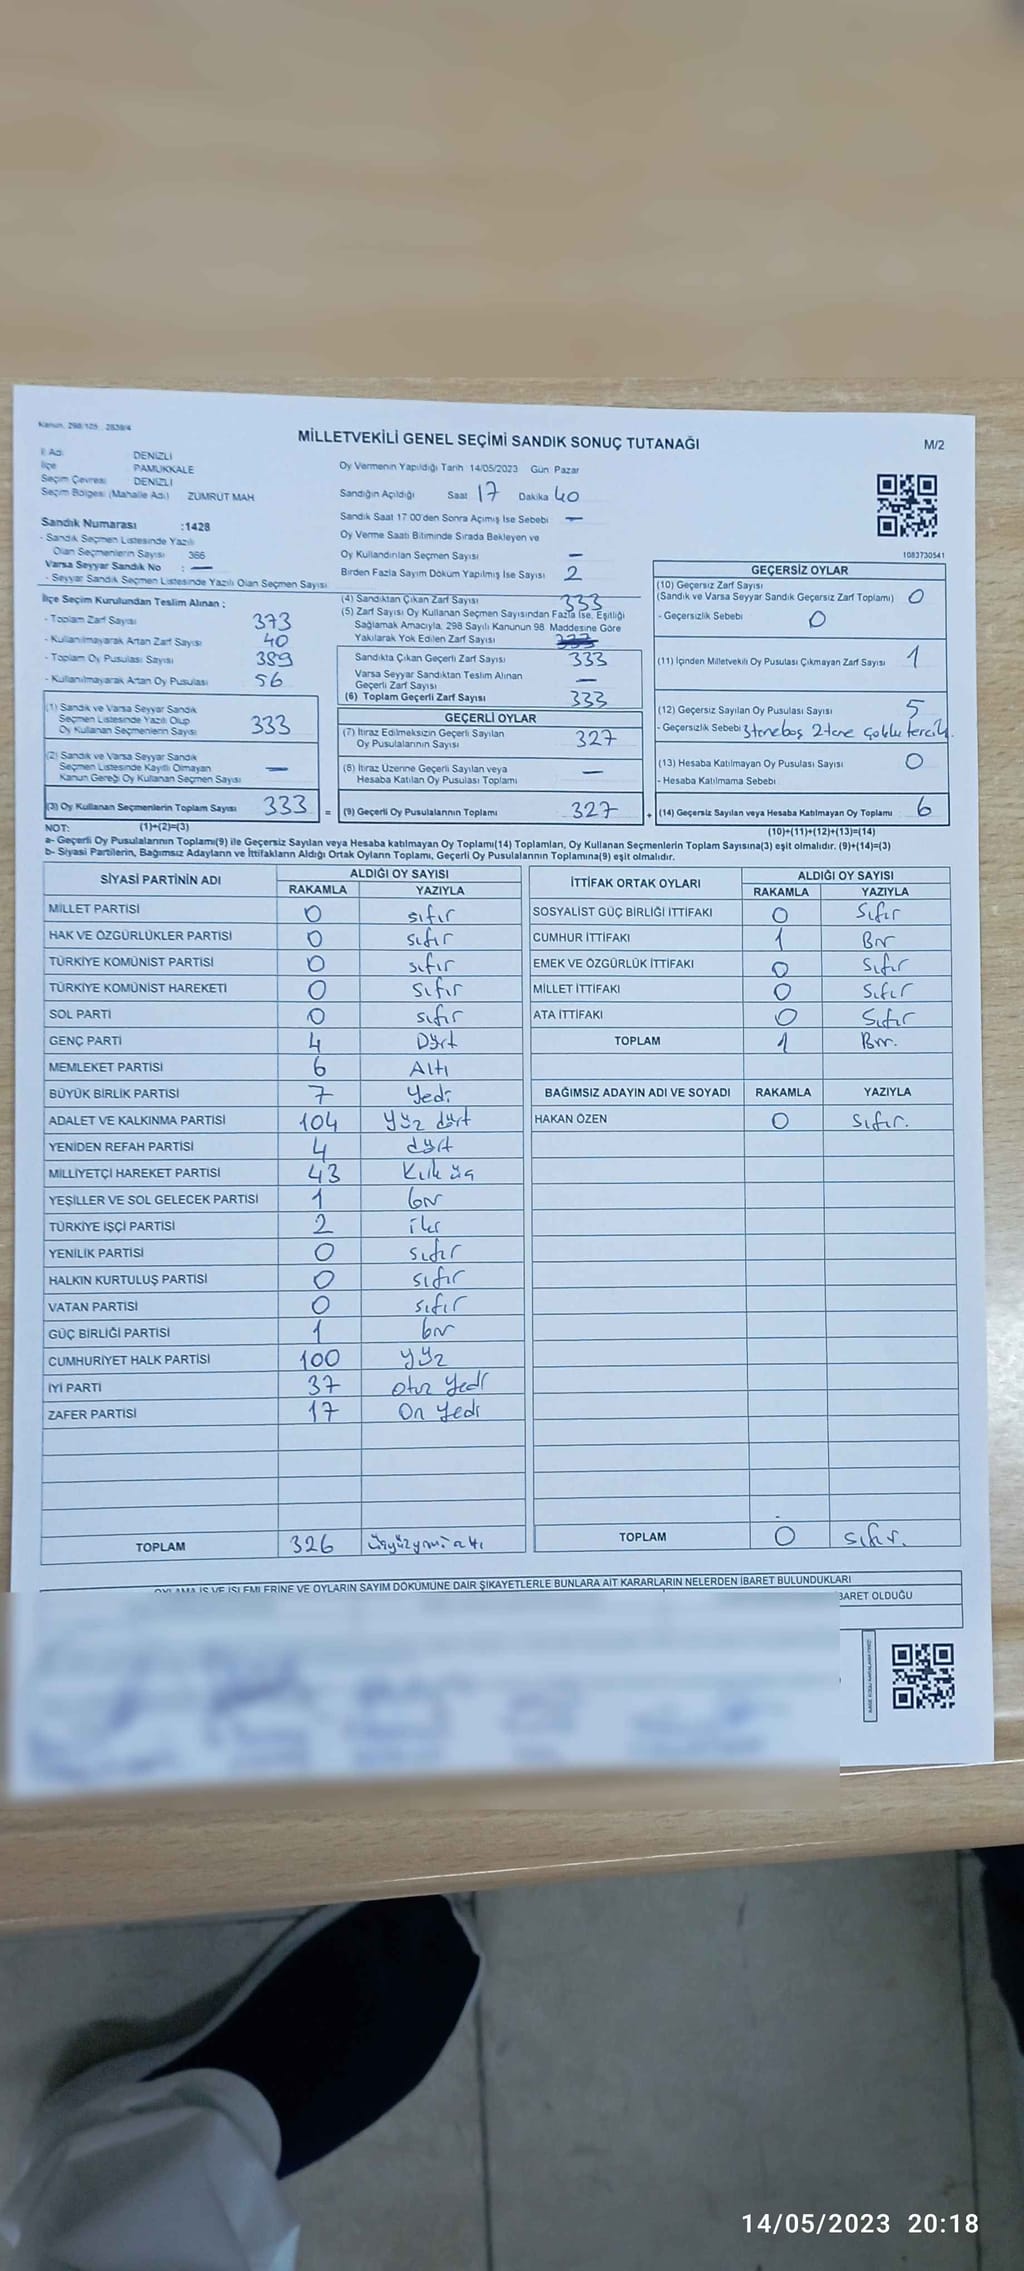 Kanun, 298/105 2839/4
MİLLETVEKİLİ GENEL SEÇİMİ SANDIK SONUÇ TUTANAĞI
M/2
İl Adı DENİZLİ
İlçe PAMUKKALE
Seçim Çevresi DENİZLİ
Seçim Bölgesi (Mahalle Adı) ZÜMRÜT MAH
Sandık Numarası :1428
- Sandık Seçmen Listesinde Yazılı
Olan Seçmenlerin Sayısı 366
Varsa Seyyar Sandık No : —
- Seyyar Sandık Seçmen Listesinde Yazılı Olan Seçmen Sayısı
Oy Vermenin Yapıldığı Tarih 14/05/2023 Gün Pazar
Sandığın Açıldığı Saat 17 Dakika 40
Sandık Saat 17:00'den Sonra Açılmış İse Sebebi —
Oy Verme Saati Bitiminde Sırada Bekleyen ve
Oy Kullandırılan Seçmen Sayısı —
Birden Fazla Sayım Döküm Yapılmış İse Sayısı 2
1083730541
İlçe Seçim Kurulundan Teslim Alınan ;
- Toplam Zarf Sayısı 373
- Kullanılmayarak Artan Zarf Sayısı 40
- Toplam Oy Pusulası Sayısı 389
- Kullanılmayarak Artan Oy Pusulası 56
(1) Sandık ve Varsa Seyyar Sandık
Seçmen Listesinde Yazılı Olup
Oy Kullanan Seçmenlerin Sayısı 333
(2) Sandık ve Varsa Seyyar Sandık
Seçmen Listesinde Kayıtlı Olmayan
Kanun Gereği Oy Kullanan Seçmen Sayısı —
(3) Oy Kullanan Seçmenlerin Toplam Sayısı 333 =
(4) Sandıktan Çıkan Zarf Sayısı 333
(5) Zarf Sayısı Oy Kullanan Seçmen Sayısından Fazla İse, Eşitliği
Sağlamak Amacıyla, 298 Sayılı Kanunun 98. Maddesine Göre
Yakılarak Yok Edilen Zarf Sayısı
Sandıkta Çıkan Geçerli Zarf Sayısı 333
Varsa Seyyar Sandıktan Teslim Alınan
Geçerli Zarf Sayısı —
(6) Toplam Geçerli Zarf Sayısı 333
GEÇERLİ OYLAR
(7) İtiraz Edilmeksizin Geçerli Sayılan
Oy Pusulalarının Sayısı 327
(8) İtiraz Üzerine Geçerli Sayılan veya
Hesaba Katılan Oy Pusulası Toplamı —
(9) Geçerli Oy Pusulalarının Toplamı 327 +
GEÇERSİZ OYLAR
(10) Geçersiz Zarf Sayısı
(Sandık ve Varsa Seyyar Sandık Geçersiz Zarf Toplamı) 0
- Geçersizlik Sebebi 0
(11) İçinden Milletvekili Oy Pusulası Çıkmayan Zarf Sayısı 1
(12) Geçersiz Sayılan Oy Pusulası Sayısı 5
- Geçersizlik Sebebi 3 tene boş 2 tene çoklu tercih.
(13) Hesaba Katılmayan Oy Pusulası Sayısı 0
- Hesaba Katılmama Sebebi
(14) Geçersiz Sayılan veya Hesaba Katılmayan Oy Toplamı 6
NOT: (1)+(2)=(3)
(10)+(11)+(12)+(13)=(14)
a- Geçerli Oy Pusulalarının Toplamı(9) ile Geçersiz Sayılan veya Hesaba katılmayan Oy Toplamı(14) Toplamları, Oy Kullanan Seçmenlerin Toplam Sayısına(3) eşit olmalıdır. (9)+(14)=(3)
b- Siyasi Partilerin, Bağımsız Adayların ve İttifakların Aldığı Ortak Oyların Toplamı, Geçerli Oy Pusulalarının Toplamına(9) eşit olmalıdır.
SİYASİ PARTİNİN ADI ALDIĞI OY SAYISI
RAKAMLA YAZIYLA
MİLLET PARTİSİ 0 sıfır
HAK VE ÖZGÜRLÜKLER PARTİSİ 0 sıfır
TÜRKİYE KOMÜNİST PARTİSİ 0 sıfır
TÜRKİYE KOMÜNİST HAREKETİ 0 sıfır
SOL PARTİ 0 sıfır
GENÇ PARTİ 4 Dört
MEMLEKET PARTİSİ 6 Altı
BÜYÜK BİRLİK PARTİSİ 7 Yedi
ADALET VE KALKINMA PARTİSİ 104 yüz dört
YENİDEN REFAH PARTİSİ 4 dört
MİLLİYETÇİ HAREKET PARTİSİ 43 Kırk üç
YEŞİLLER VE SOL GELECEK PARTİSİ 1 bir
TÜRKİYE İŞÇİ PARTİSİ 2 iki
YENİLİK PARTİSİ 0 sıfır
HALKIN KURTULUŞ PARTİSİ 0 sıfır
VATAN PARTİSİ 0 sıfır
GÜÇ BİRLİĞİ PARTİSİ 1 bir
CUMHURİYET HALK PARTİSİ 100 yüz
İYİ PARTİ 37 otuz yedi
ZAFER PARTİSİ 17 On yedi
TOPLAM 326 üçyüzyirmi altı
İTTİFAK ORTAK OYLARI ALDIĞI OY SAYISI
RAKAMLA YAZIYLA
SOSYALİST GÜÇ BİRLİĞİ İTTİFAKI 0 Sıfır
CUMHUR İTTİFAKI 1 Bir
EMEK VE ÖZGÜRLÜK İTTİFAKI 0 Sıfır
MİLLET İTTİFAKI 0 Sıfır
ATA İTTİFAKI 0 Sıfır
TOPLAM 1 Bir.
BAĞIMSIZ ADAYIN ADI VE SOYADI RAKAMLA YAZIYLA
HAKAN ÖZEN 0 Sıfır.
TOPLAM 0 sıfır.
OYLAMA İŞ VE İŞLEMLERİNE VE OYLARIN SAYIM DÖKÜMÜNE DAİR ŞİKAYETLERLE BUNLARA AİT KARARLARIN NELERDEN İBARET BULUNDUKLARI
BARET OLDUĞU
14/05/2023 20:18